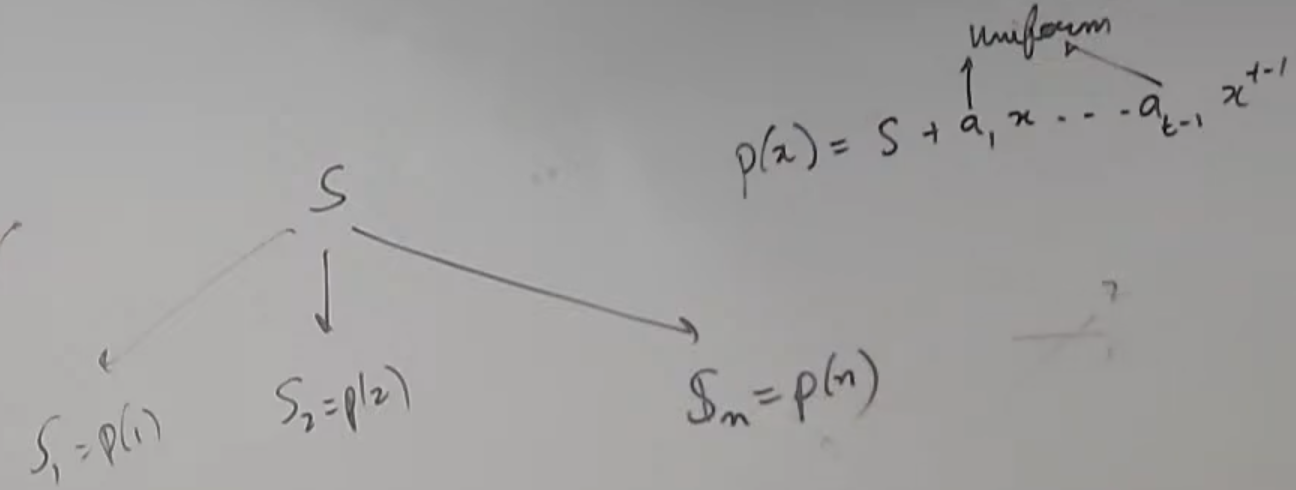 Uniform
p(x) = S + a₁ x - - - aₜ₋₁ xᵗ⁻¹
S
S₁ = p(1)
S₂ = p(2)
Sₙ = p(n)